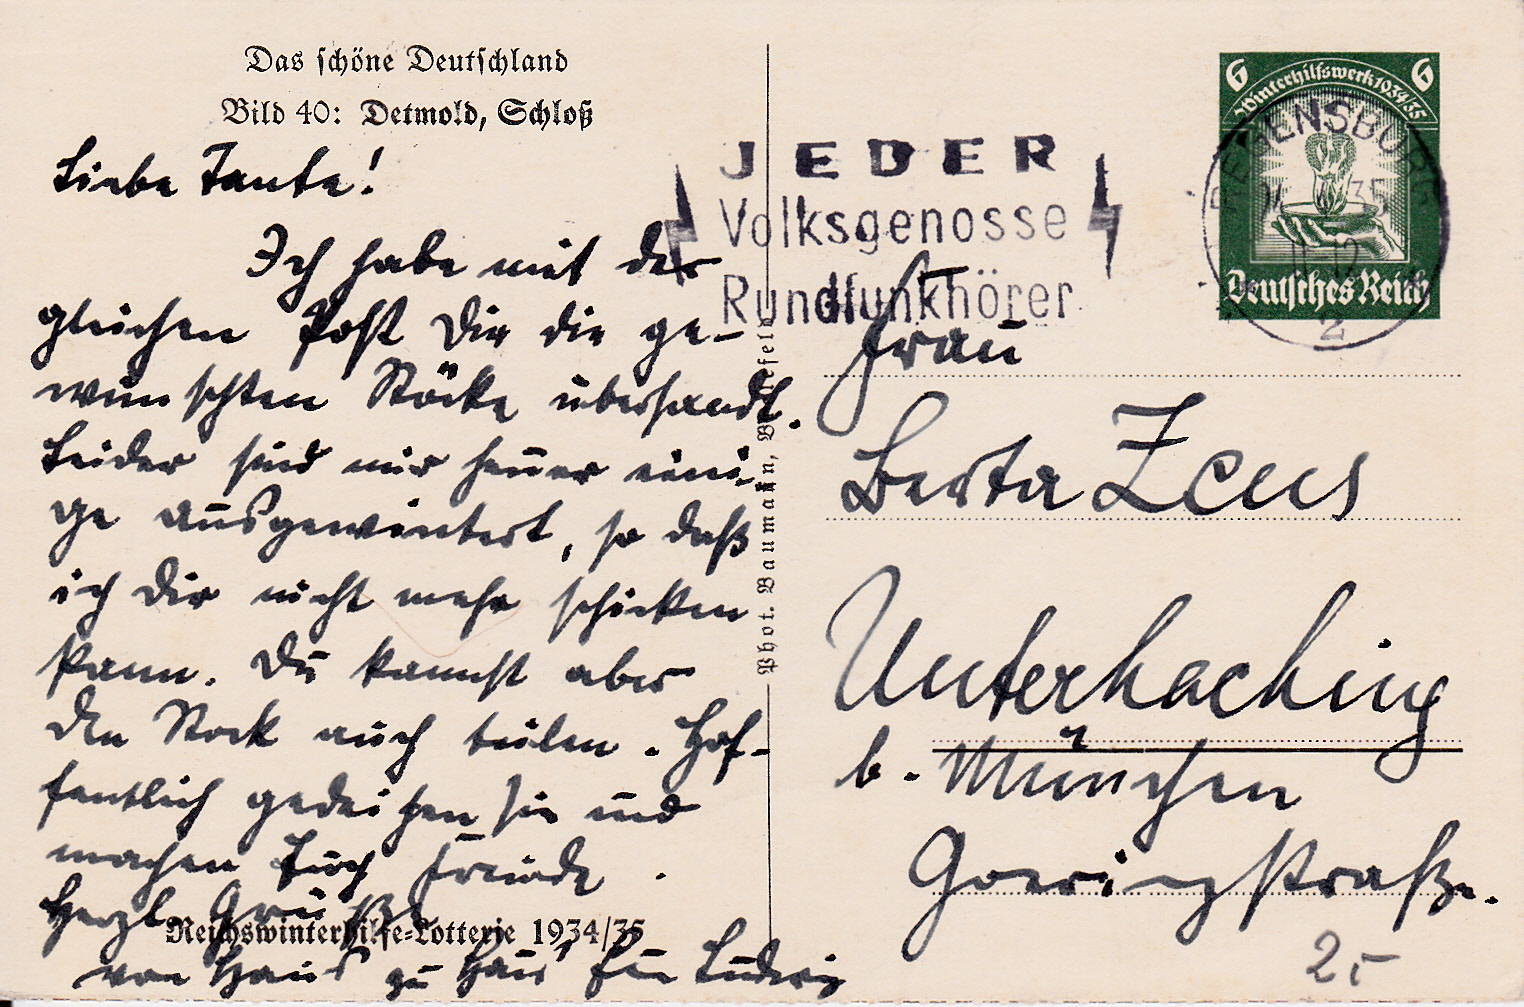 Das schöne Deutschland
Bild 40: Detmold, Schloß
Liebe Tante!
Ich habe mit der
gleichen Post Dir die ge-
wünschten Stöcke übersandt.
Leider sind mir heuer eini-
ge ausgewintert, so daß
ich Dir nicht mehr schicken
kann. Du kannst aber
den Stock auch teilen. Hof-
fentlich gedeihen sie und
machen Euch Freude.
Herzl. Grüße
von Haus zu Haus Euer Ludwig
Reichswinterhilfe-Lotterie 1934/35
Phot. Baumann, Bielefeld
JEDER
Volksgenosse
Rundfunkhörer
6 Winterhilfswerk 1934/35 6
Deutsches Reich
REGENSBURG
2
Frau
Berta Zeus
Unterhaching
b. München
Goeringstraße.